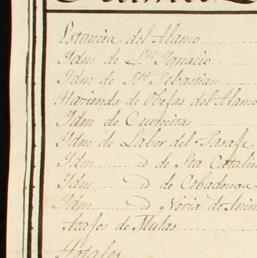 Estancia del Alamo
Idm de Sn Ygnacio
Idm de Sn Sebastian
Hacienda de Obejas del Alamo
Idm de
Idm de Labor del Pasaje
Idm D de Sta Catali
Idm D de Cobadonga
Idm D Noria de
Atajos de Mulas
Totales